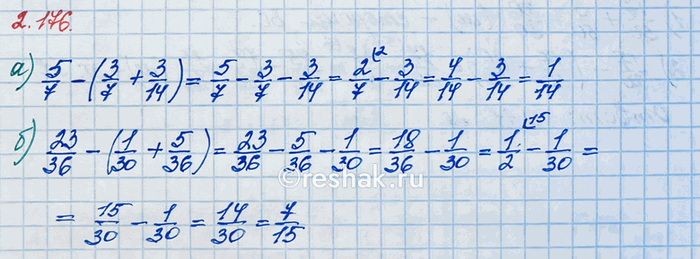 2.176.
а) 5/7 - (3/7 + 3/14) = 5/7 - 3/7 - 3/14 = 2/7 ⌊2 - 3/14 = 4/14 - 3/14 = 1/14
б) 23/36 - (1/30 + 5/36) = 23/36 - 5/36 - 1/30 = 18/36 - 1/30 = 1/2 ⌊15 - 1/30 =
= 15/30 - 1/30 = 14/30 = 7/15
©reshak.ru